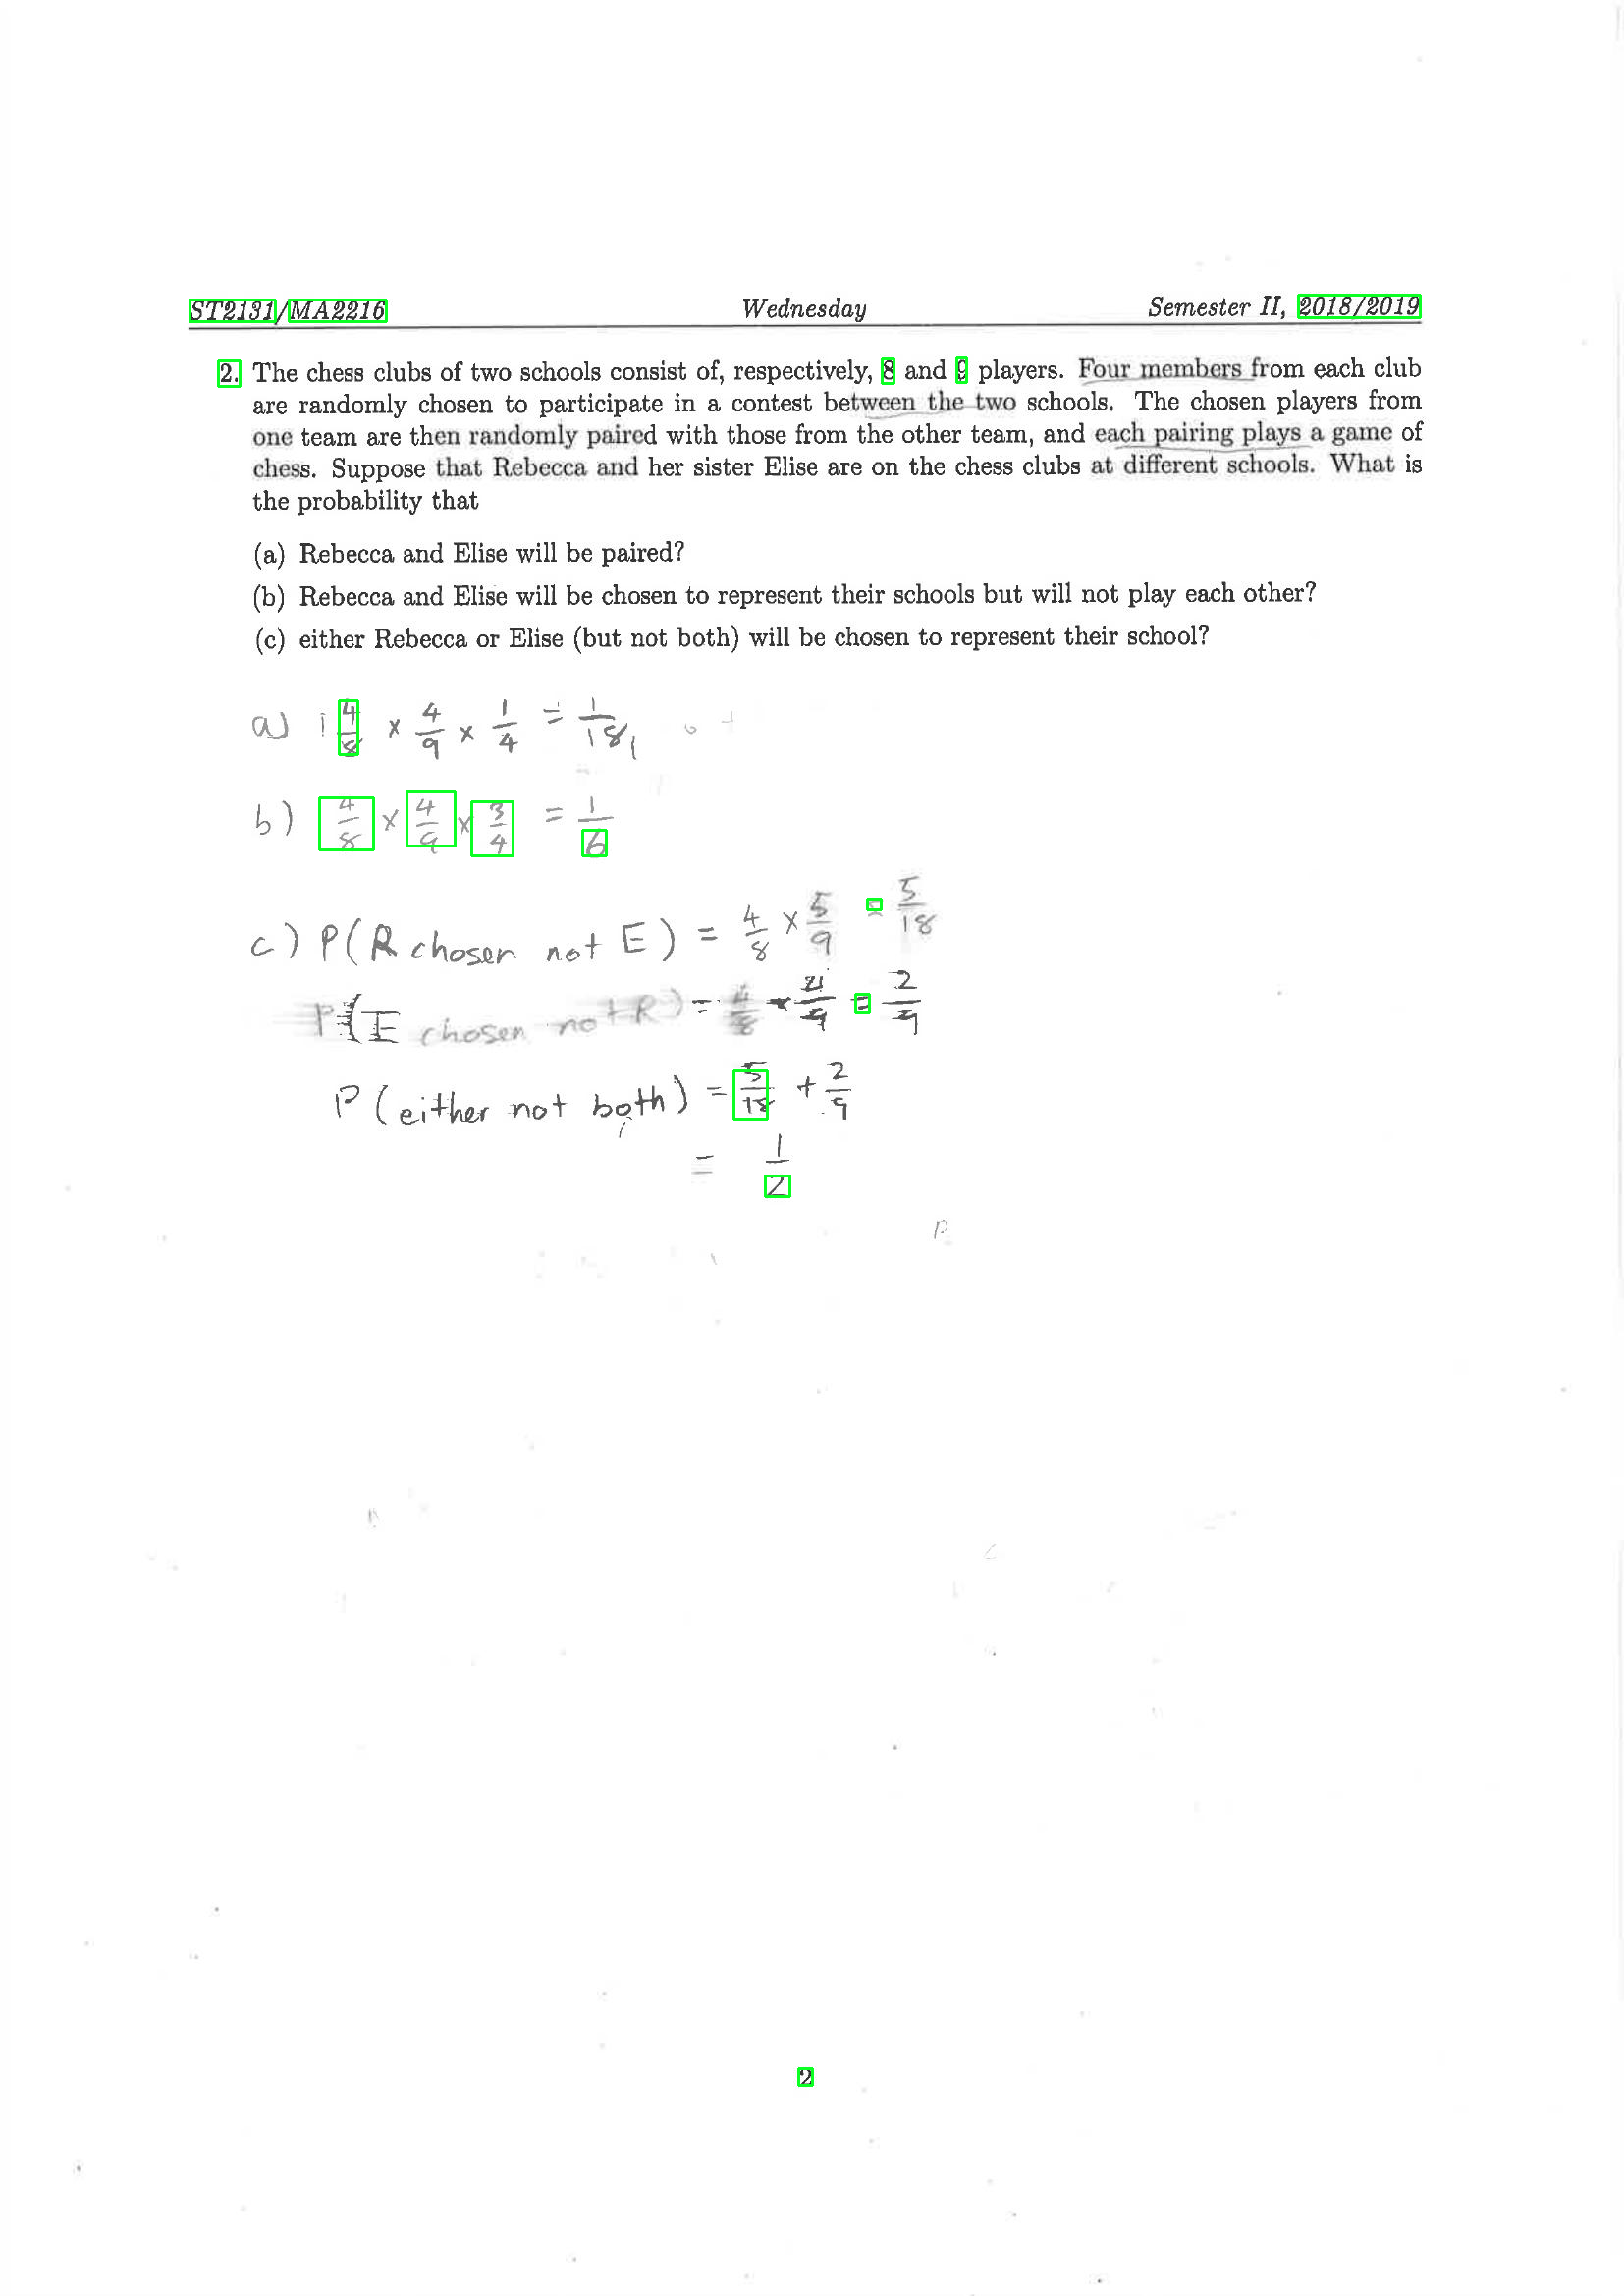 ST2131/MA2216 Wednesday Semester II, 2018/2019
2. The chess clubs of two schools consist of, respectively, 8 and 9 players. Four members from each club
are randomly chosen to participate in a contest between the two schools. The chosen players from
one team are then randomly paired with those from the other team, and each pairing plays a game of
chess. Suppose that Rebecca and her sister Elise are on the chess clubs at different schools. What is
the probability that
(a) Rebecca and Elise will be paired?
(b) Rebecca and Elise will be chosen to represent their schools but will not play each other?
(c) either Rebecca or Elise (but not both) will be chosen to represent their school?
a) 4/8 × 4/9 × 1/4 = 1/18
b) 4/8 × 4/9 × 3/4 = 1/6
c) P(R chosen not E) = 4/8 × 5/9 = 5/18
P(E chosen not R) = 4/8 × 4/9 = 2/9
P(either not both) = 5/18 + 2/9
= 1/2
P
2